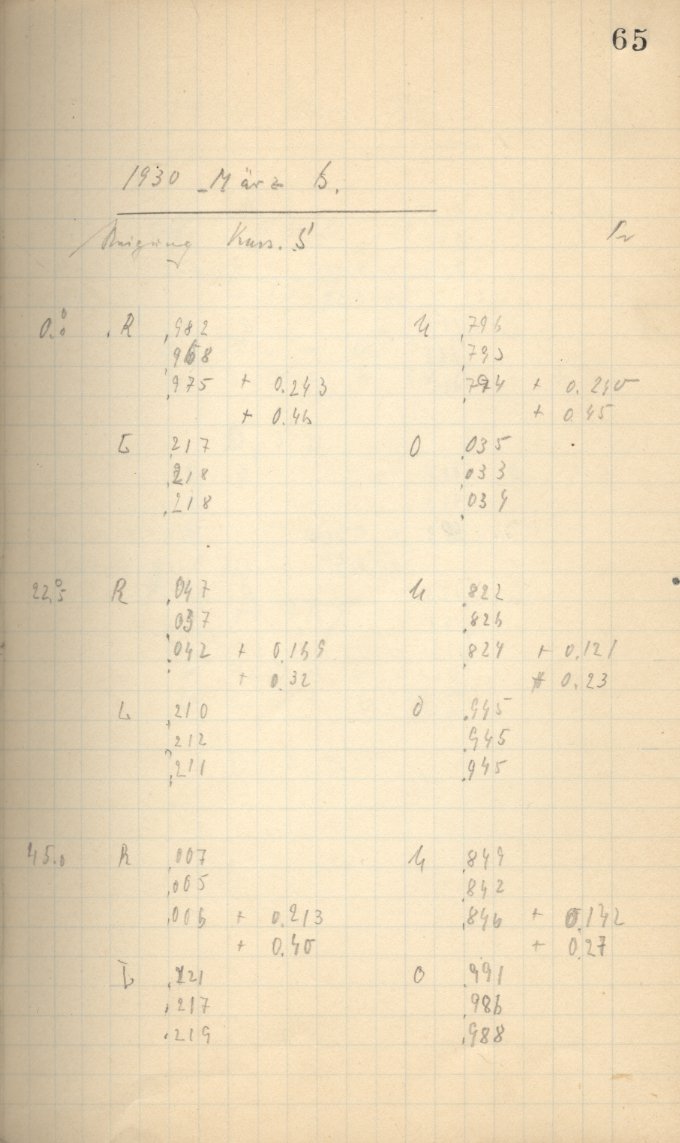 65
1930 März 6.
Neigung S
0.°0 R .982 U .796
.968 .793
.975 + 0.243 .794 + 0.240
+ 0.46 + 0.45
L .217 O .035
.218 .033
.218 .034
22.°5 R .047 U .822
.037 .826
.042 + 0.169 .824 + 0.121
+ 0.32 + 0.23
L .210 O .945
.212 .945
.211 .945
45.0 R .007 U .849
.005 .842
.006 + 0.213 .846 + 0.142
+ 0.40 + 0.27
L .221 O .991
.217 .986
.219 .988